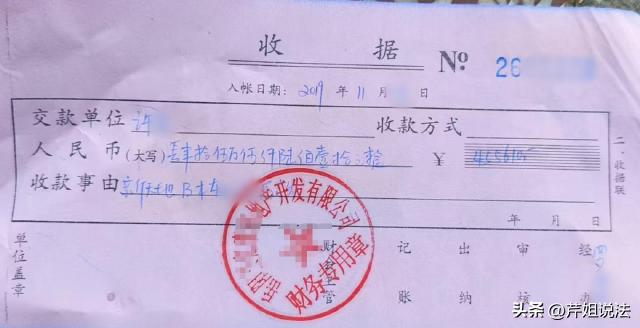 收 据 № 26
入帐日期：2019 年 11 月 日
交款单位 许 收款方式
人民币(大写) 肆拾伍万伍仟陆佰壹拾 ¥ 455610
收款事由
二、收据联
年 月 日
房地产开发有限公司
财务专用章
单位盖章 财务主管 记账 出纳 审核 经办
头条 @芹姐说法